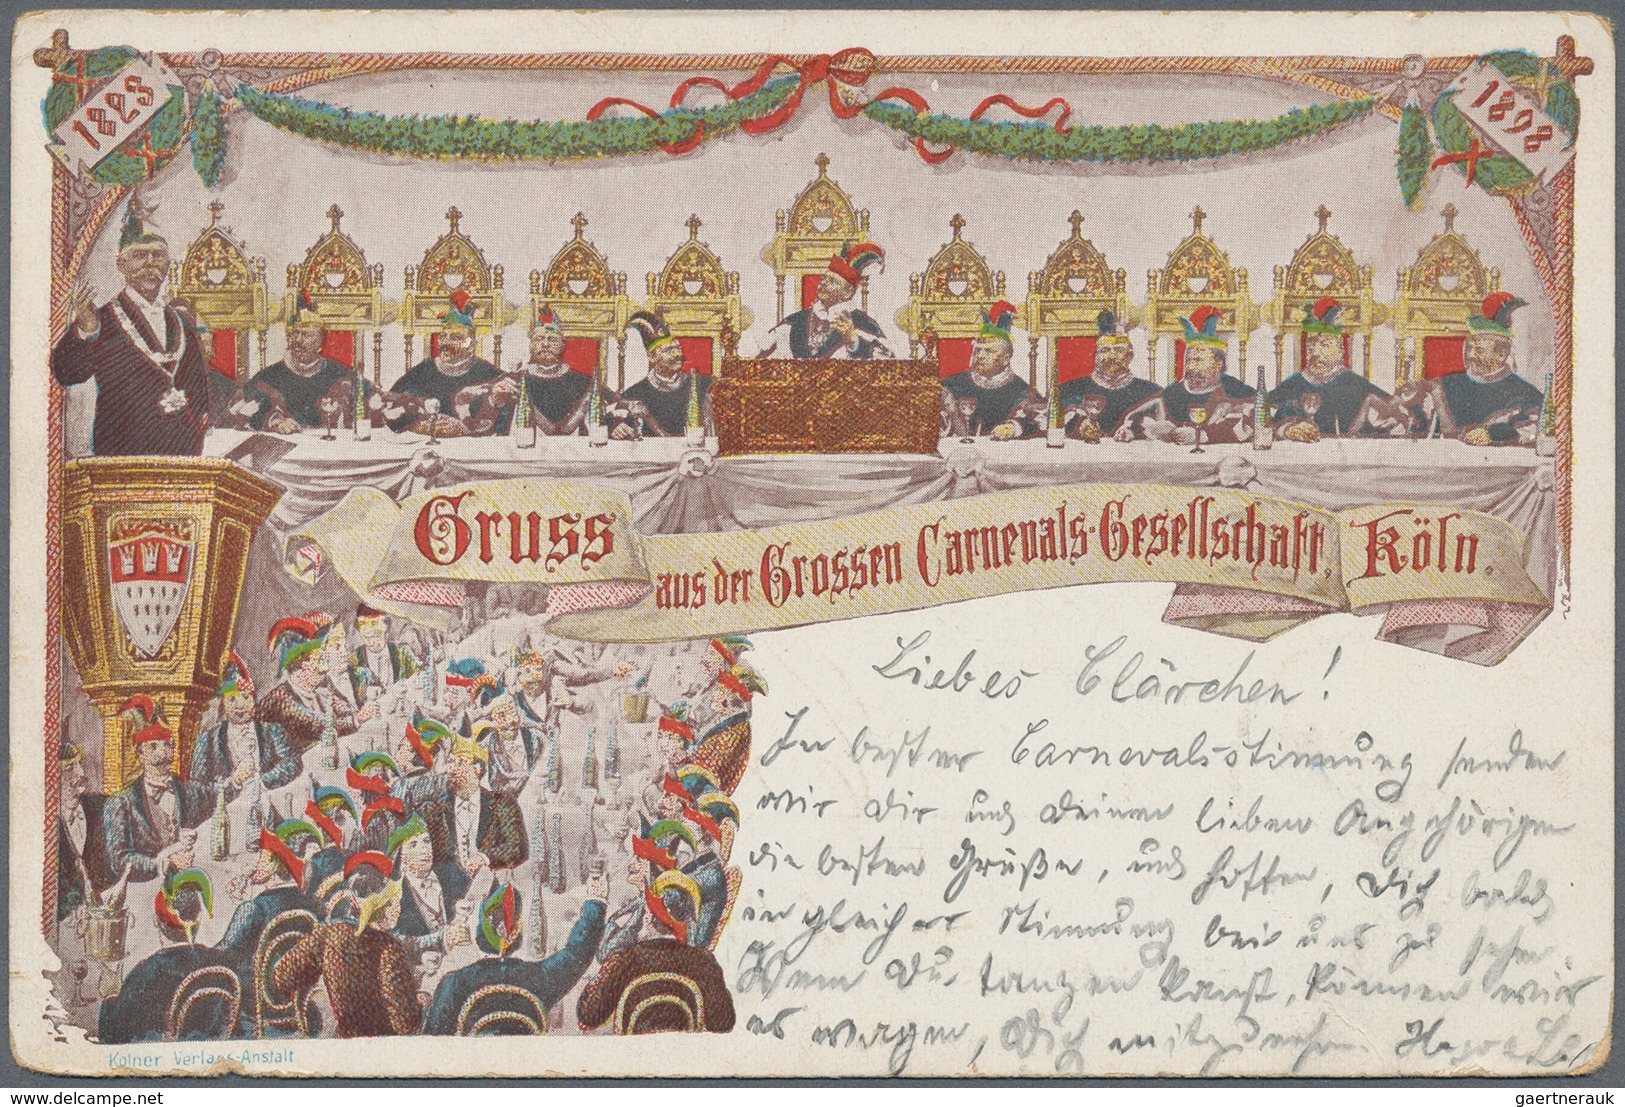 1823
1898
Gruss
aus der Grossen Carnevals-Gesellschaft, Köln.
Liebes Clärchen!
In bester Carnevalsstimmung senden
wir Dir und Deinen lieben Angehörigen
die besten Grüße, und hoffen, Dich bald
in gleicher Stimmung bei uns zu sehen.
Wenn Du tanzen kannst, können wir
es wagen, Dich mitzunehmen
Kölner Verlags-Anstalt
www.delcampe.net
gaertnerauk